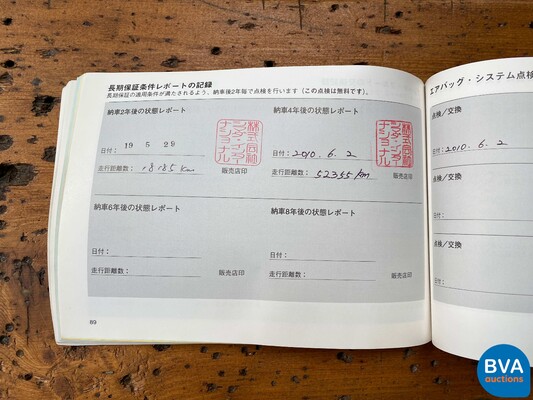 長期保証条件レポートの記録
長期保証の適用条件が満たされるよう、納車後2年毎で点検を行います（この点検は無料です）。
納車2年後の状態レポート
日付： 19 5 29
走行距離数： 18185 km
販売店印
納車4年後の状態レポート
日付： 2010. 6. 2
走行距離数： 52355 km
販売店印
納車6年後の状態レポート
日付：
走行距離数：
販売店印
納車8年後の状態レポート
日付：
走行距離数：
販売店印
69
エアバッグ・システム点検
点検／交換
日付： 2010. 6. 2
点検／交換
日付：
点検／交換
日付：
BVA
auctions